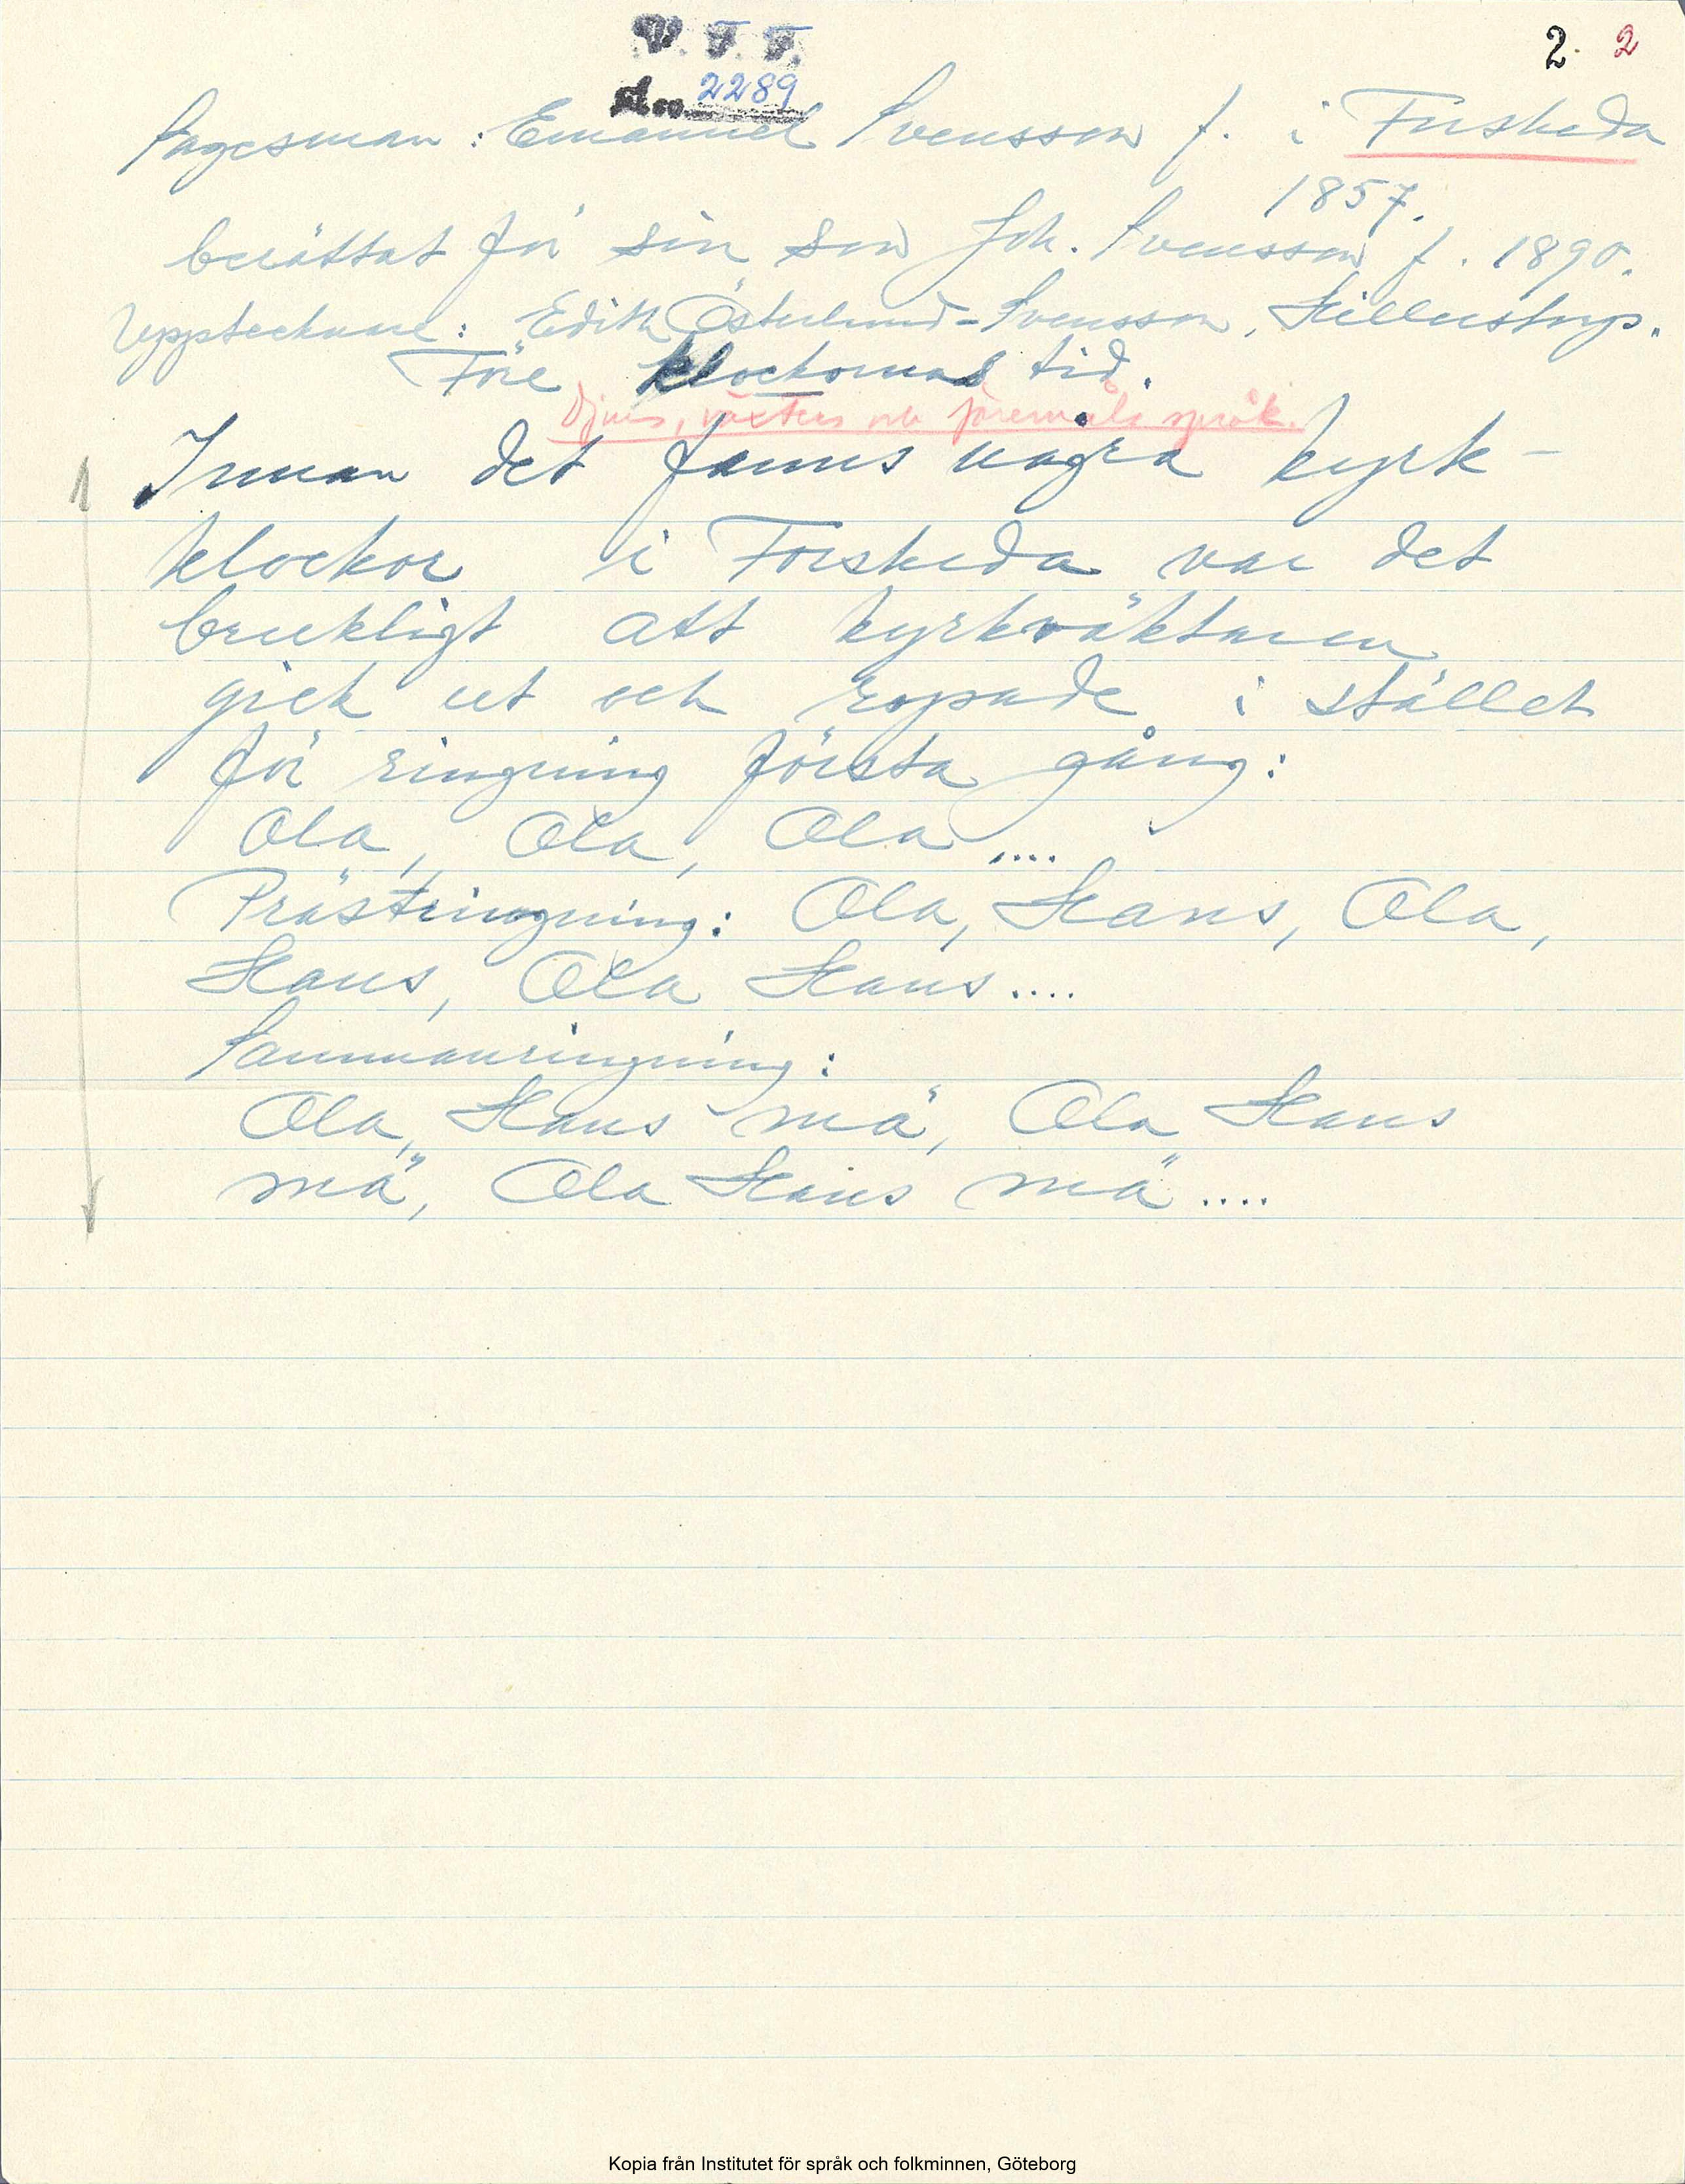 V. F. F.
2. 2
2289
Sagesman: Emanuel Svensson f. i Forsheda
1857.
berättat för sin son Joh. Svensson f. 1890.
Upptecknare: Edith Österlund-Svensson, Hillerstorp.
Före klockornas tid.
Djurs, växters och föremåls språk.
Innan det fanns några kyrk-
klockor i Forsheda var det
brukligt att kyrkväktaren
gick ut och ropade i stället
för ringning första gång:
Ola, Ola, Ola ....
Prästringning: Ola, Hans, Ola,
Hans, Ola Hans ....
Sammanringning:
Ola, Hans mä, Ola Hans
mä, Ola Hans mä ....
Kopia från Institutet för språk och folkminnen, Göteborg